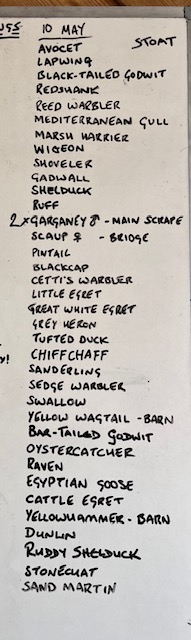 10 MAY
STOAT
AVOCET
LAPWING
BLACK-TAILED GODWIT
REDSHANK
REED WARBLER
MEDITERRANEAN GULL
MARSH HARRIER
WIGEON
SHOVELER
GADWALL
SHELDUCK
RUFF
2 x GARGANEY ♂ - MAIN SCRAPE
SCAUP ♀ - BRIDGE
PINTAIL
BLACKCAP
CETTI'S WARBLER
LITTLE EGRET
GREAT WHITE EGRET
GREY HERON
TUFTED DUCK
CHIFFCHAFF
SANDERLING
SEDGE WARBLER
SWALLOW
YELLOW WAGTAIL - BARN
BAR-TAILED GODWIT
OYSTERCATCHER
RAVEN
EGYPTIAN GOOSE
CATTLE EGRET
YELLOWHAMMER - BARN
DUNLIN
RUDDY SHELDUCK
STONECHAT
SAND MARTIN